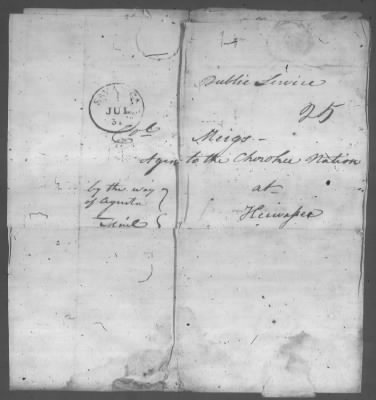 Public Service
25
JUL
Colo
Meigs -
Agen to the Cherokee Nation
at
Hiwassee
by the way
of Agusta
Mail